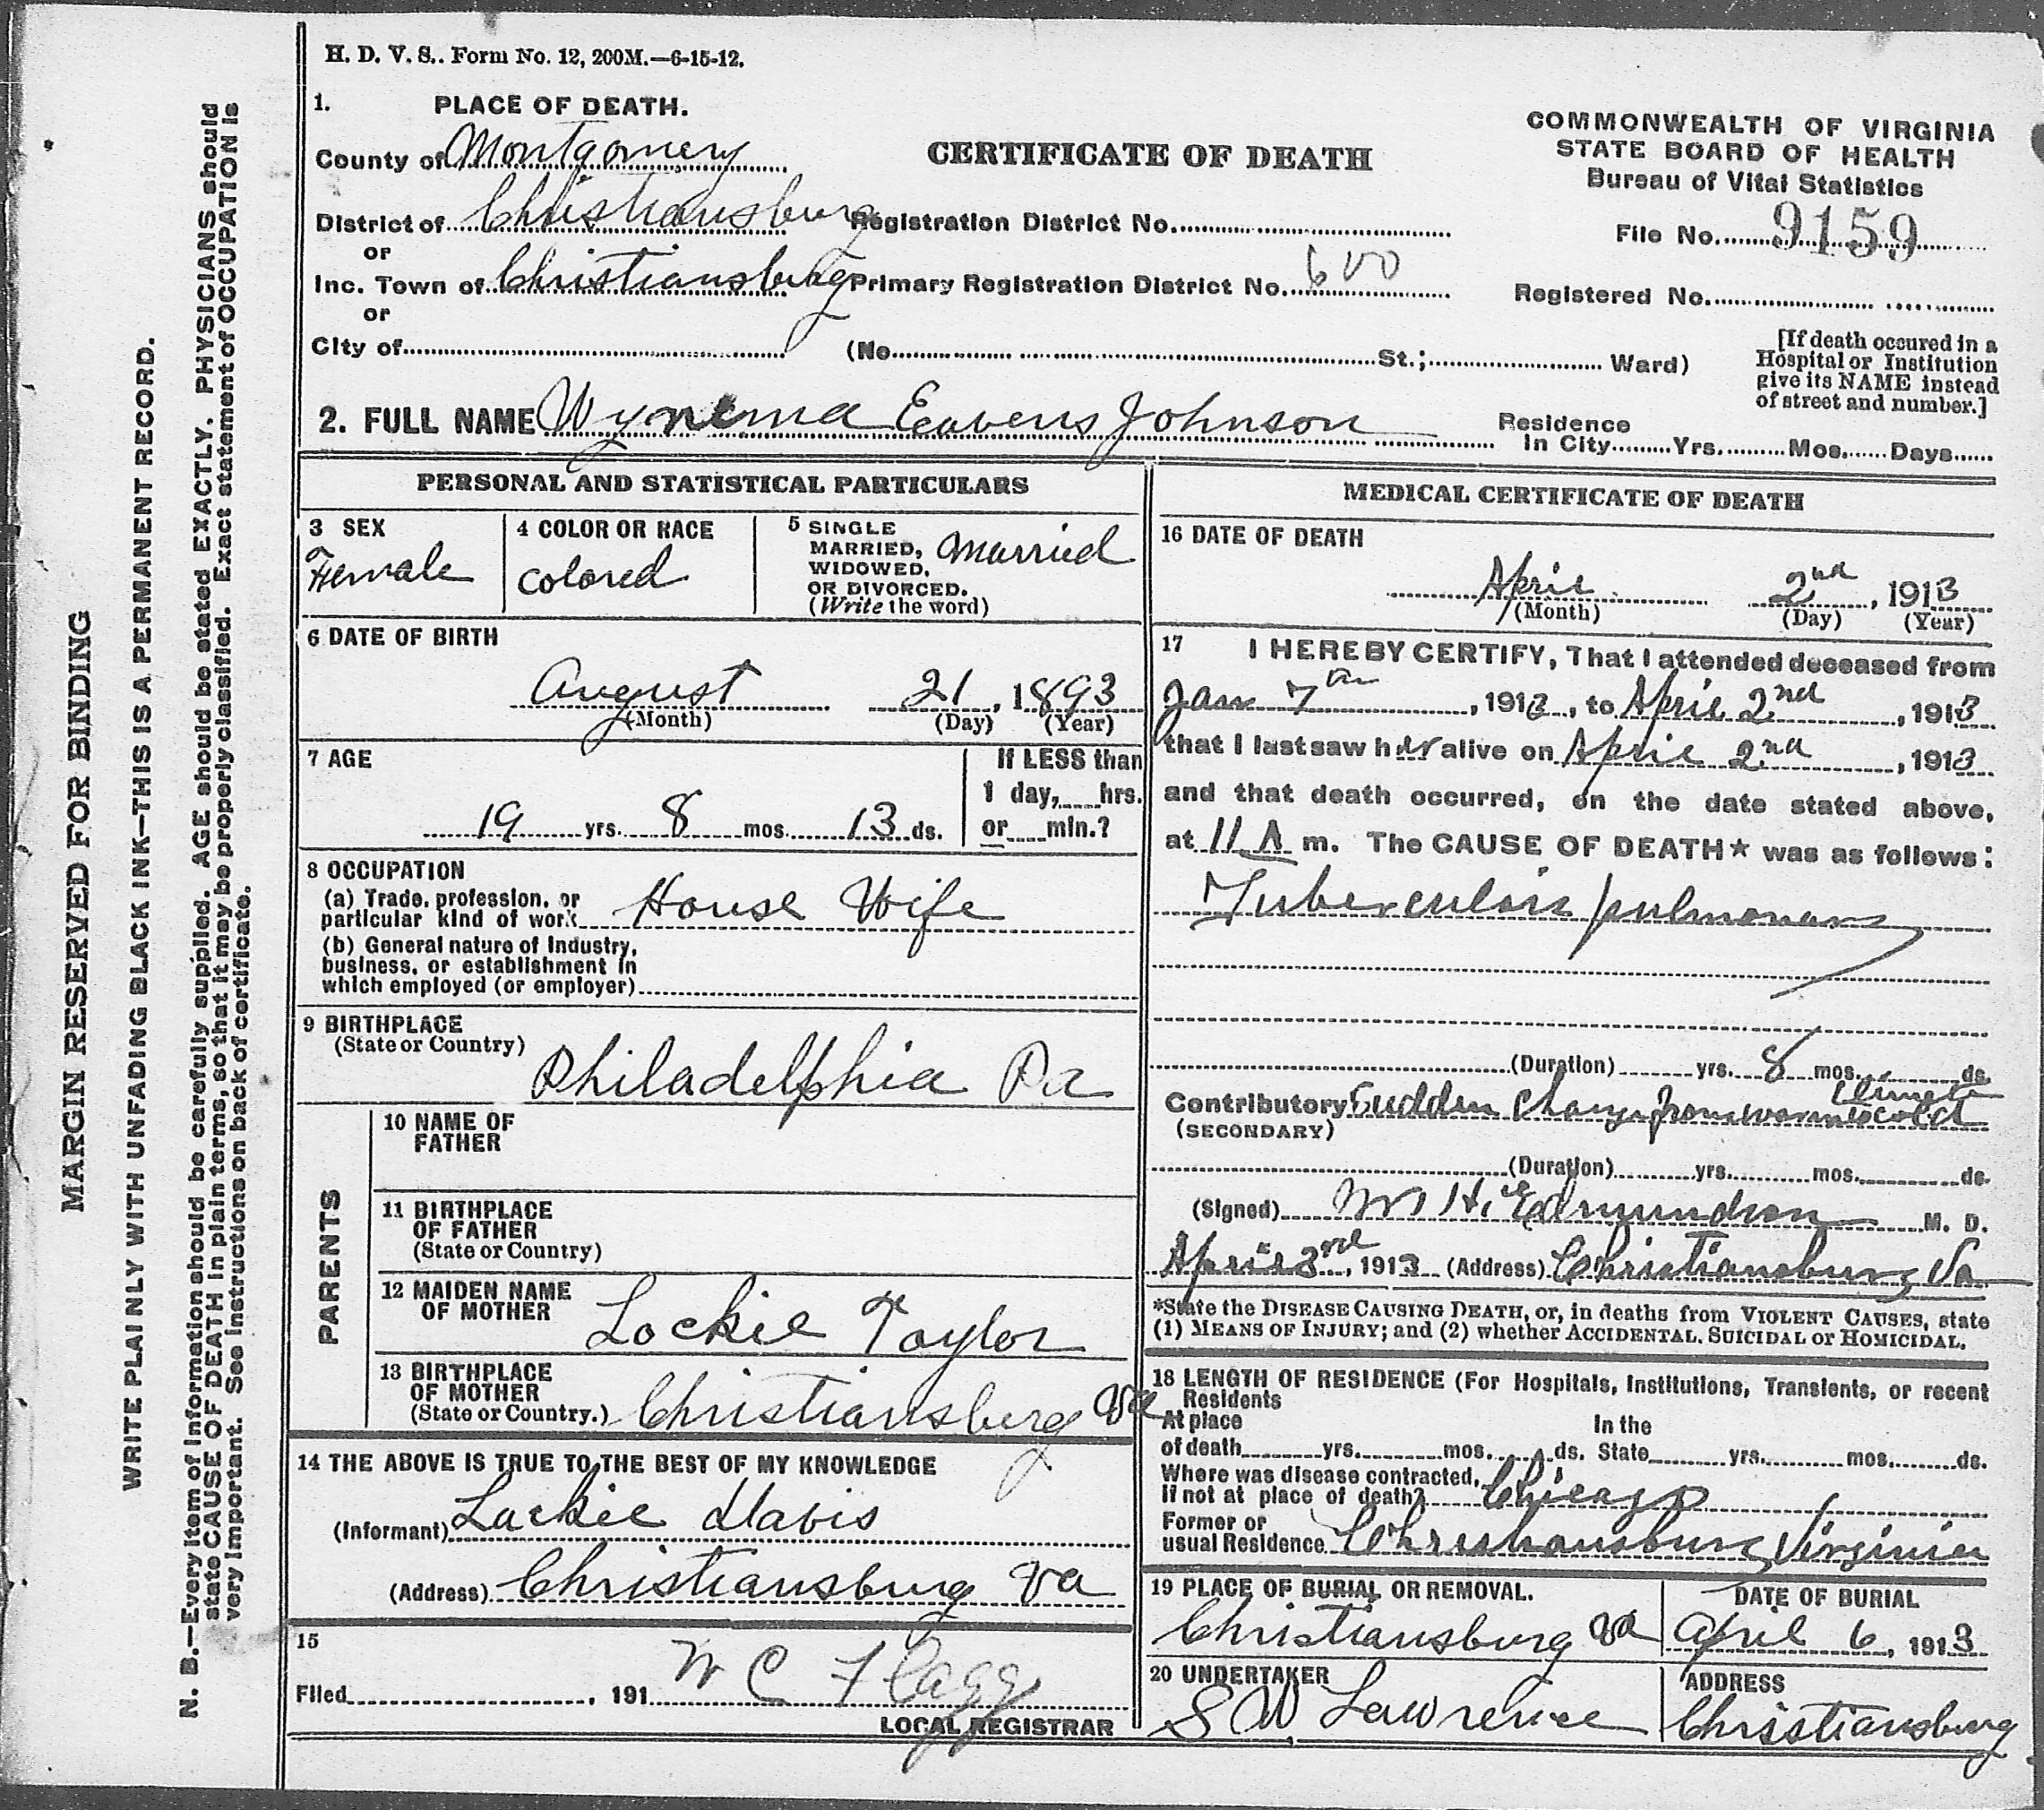 H. D. V. S.. Form No. 12, 200M.—6-15-12.
1. PLACE OF DEATH.
County of Montgomery
CERTIFICATE OF DEATH
COMMONWEALTH OF VIRGINIA
STATE BOARD OF HEALTH
Bureau of Vital Statistics
District of Christiansburg Registration District No.
File No. 9159
or
Inc. Town of Christiansburg Primary Registration District No. 600
Registered No.
or
City of (No. St.; Ward)
[If death occured in a
Hospital or Institution
give its NAME instead
of street and number.]
2. FULL NAME Wynema Johnson
Residence
In City Yrs. Mos. Days
PERSONAL AND STATISTICAL PARTICULARS
3 SEX
Female
4 COLOR OR RACE
Colored
5 SINGLE
MARRIED,
WIDOWED,
OR DIVORCED.
(Write the word)
Married
6 DATE OF BIRTH
August 21, 1893
(Month) (Day) (Year)
7 AGE
19 yrs. 8 mos. 13 ds.
If LESS than
1 day, hrs.
or min.?
8 OCCUPATION
(a) Trade, profession, or
particular kind of work House Wife
(b) General nature of Industry,
business, or establishment in
which employed (or employer)
9 BIRTHPLACE
(State or Country)
Philadelphia Pa
PARENTS
10 NAME OF
FATHER
11 BIRTHPLACE
OF FATHER
(State or Country)
12 MAIDEN NAME
OF MOTHER
Lockie Taylor
13 BIRTHPLACE
OF MOTHER
(State or Country.) Christiansburg Va
14 THE ABOVE IS TRUE TO THE BEST OF MY KNOWLEDGE
(Informant) Lockie Davis
(Address) Christiansburg Va
15
Filed , 191 W C Flagg
LOCAL REGISTRAR
MEDICAL CERTIFICATE OF DEATH
16 DATE OF DEATH
April 2nd, 1913
(Month) (Day) (Year)
17 I HEREBY CERTIFY, That I attended deceased from
Jan 7th, 1913, to April 2nd, 1913
that I last saw her alive on April 2nd, 1913
and that death occurred, on the date stated above,
at 11 A m. The CAUSE OF DEATH* was as follows:
Tuberculosis pulmonary
(Duration) yrs. 8 mos. ds.
Contributory Sudden change from warm to cold climate
(SECONDARY)
(Duration) yrs. mos. ds.
(Signed) H. Edmundson M. D.
April 3rd, 1913 (Address) Christiansburg Va
*State the DISEASE CAUSING DEATH, or, in deaths from VIOLENT CAUSES, state
(1) MEANS OF INJURY; and (2) whether ACCIDENTAL, SUICIDAL or HOMICIDAL.
18 LENGTH OF RESIDENCE (For Hospitals, Institutions, Transients, or recent
Residents
At place In the
of death yrs. mos. ds. State yrs. mos. ds.
Where was disease contracted,
If not at place of death? Chicago
Former or
usual Residence Christiansburg Virginia
19 PLACE OF BURIAL OR REMOVAL.
Christiansburg Va
DATE OF BURIAL
April 6, 1913
20 UNDERTAKER
S W Lawrence
ADDRESS
Christiansburg
MARGIN RESERVED FOR BINDING
WRITE PLAINLY WITH UNFADING BLACK INK—THIS IS A PERMANENT RECORD.
N. B.—Every item of information should be carefully supplied. AGE should be stated EXACTLY. PHYSICIANS should
state CAUSE OF DEATH in plain terms, so that it may be properly classified. Exact statement of OCCUPATION is
very important. See instructions on back of certificate.